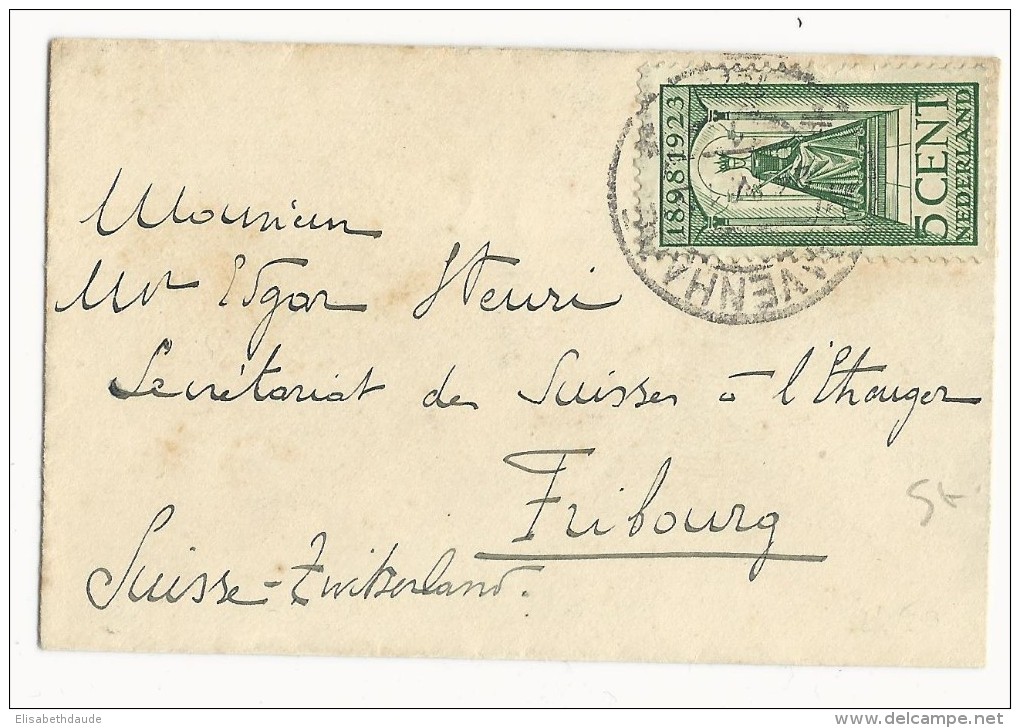 1898 1923
5 CENT
NEDERLAND
AVENHA
Monsieur
Mr Edgar Henri
Secrétariat des Suisses à l'Etranger
Fribourg
Suisse-Zwitserland.
Elisabethdaude
delcampe.net